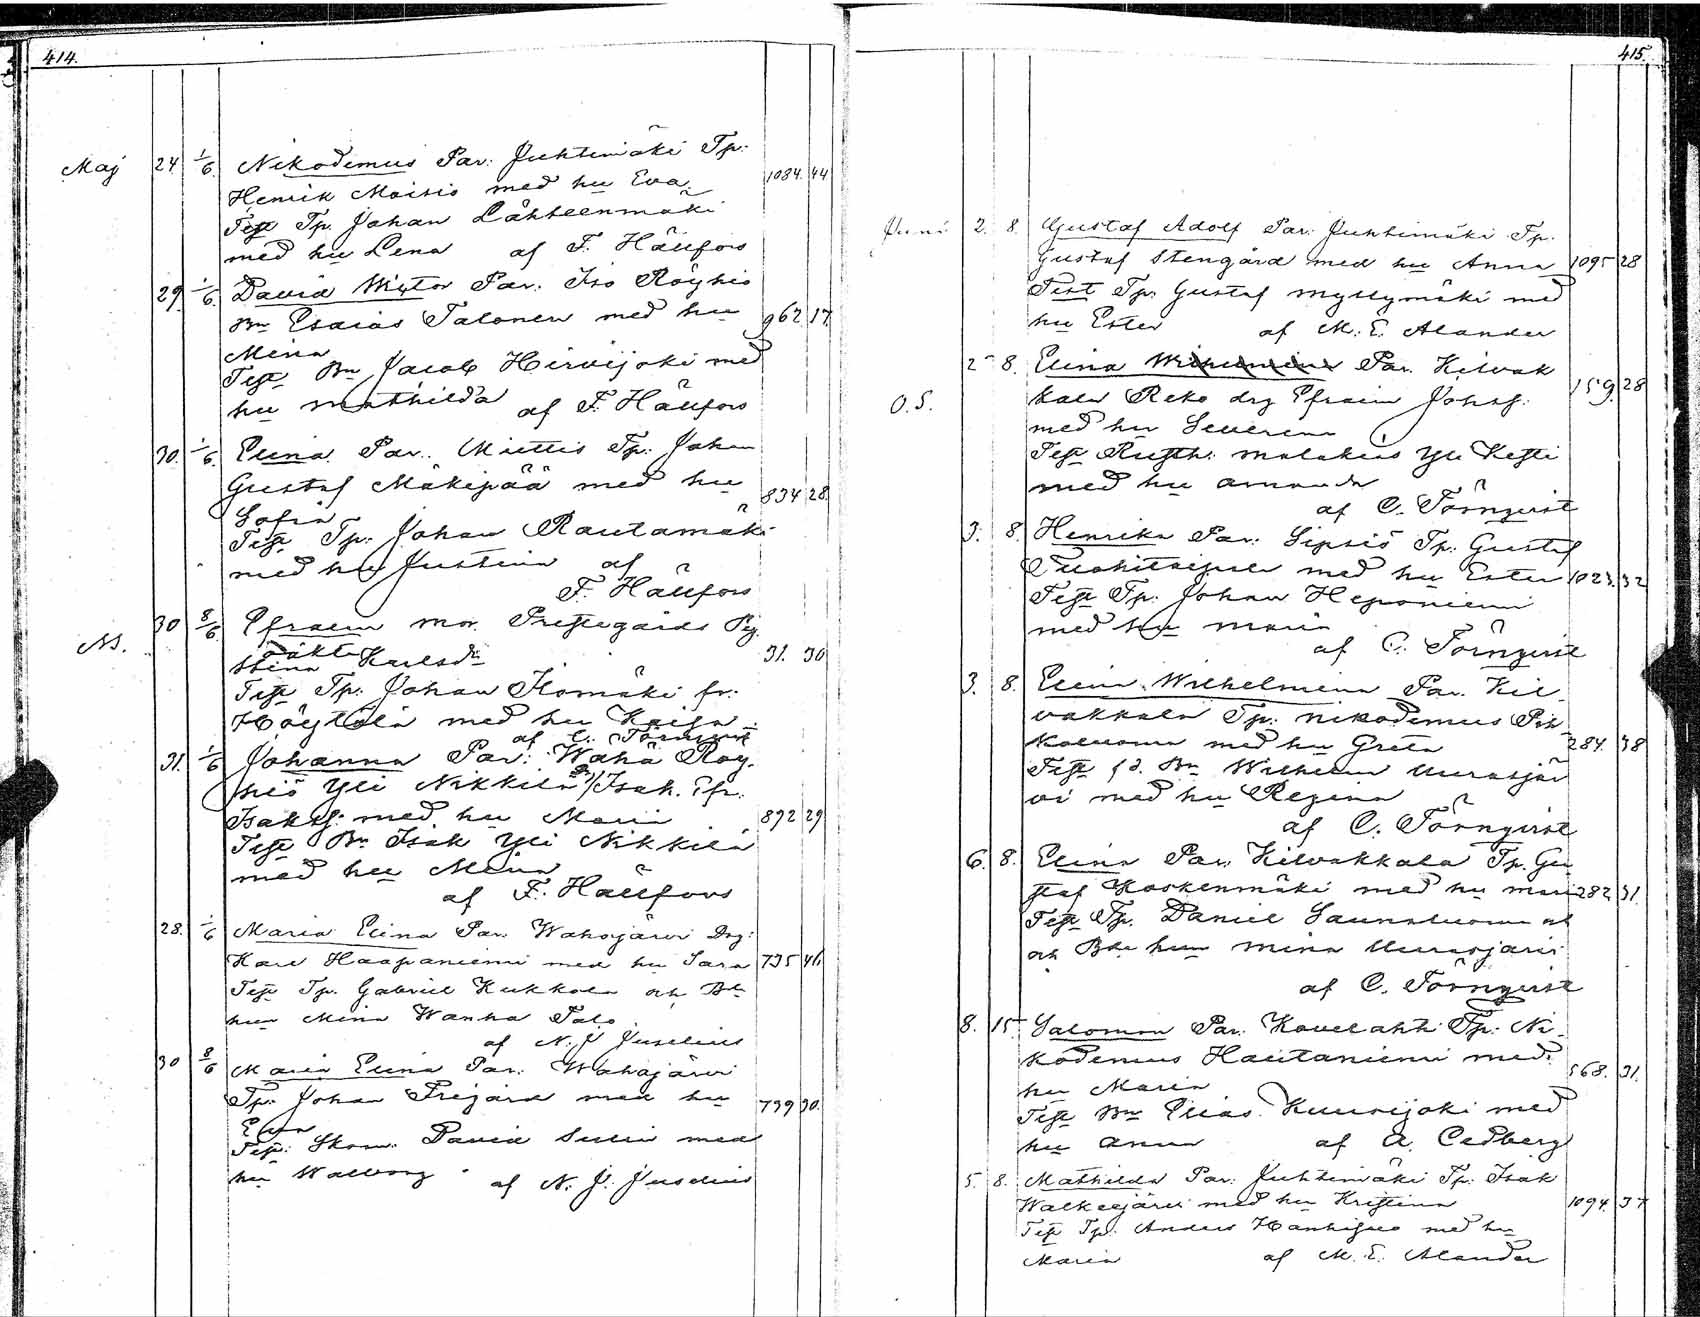 414.
Maj 24 1/6 Nikodemus Par: Juhtimäki Tp:
Henrik Moisio med hu Eva 1084. 44
Test Tp. Johan Lähteenmäki
med hu Lena af F. Hällfors
29. 1/6 David Wictor Par. Iso Röyhiö
Bn Esaias Talonen med hu 962 17.
Mina
Test Bn Jacob Hirvijoki med
hu Mathilda af F. Hällfors
30. 1/6 Elina Par. Miettis Tp. Johan
Gustaf Mäkipää med hu 834 28.
Sofia
Test Tp: Johan Rautamäki
med hu Justina af
F. Hällfors
N. 30 8/6 Efraem mor. Prestegårds Pig.
oäkta
Stina Karlsdr 31. 30
Test Tp. Johan Isomäki fr.
Höytölä med hu Kaisa
af C. Törnqvist
31. 1/6 Johanna Par: Wähä Röy-
hiö Yli Nikkilä Isak. Efr.
Isakss: med hu Maria 892 29
Test Bn Isak Yli Nikkilä
med hu Mina
af F. Hällfors
28. 1/6 Maria Elina Par. Wahojärvi Drg:
Karl Haapaniemi med hu Sara 735 46
Test Tp. Gabriel Kukkola och Bds
hu Mina Wanha Talo
af N. J. Juselius
30 8/6 Maria Elina Par: Wahojärvi
Tp. Johan Frigård med hu 799 30.
Eva
Test: Skom. David Selin med
hu Walborg af N. J. Juselius
415.
Juni 2. 8. Gustaf Adolf Par: Juhtimäki Tp.
Gustaf Stengård med hu Anna 1095 28
Test Tp. Gustaf Myllymäki med
hu Ester af M. E. Alander
2 8. Elina Wilhelmina Par. Kilvak
O.S. kala Reko drg Efraim Johss: 159. 28
med hu Severina
Test Rusth: Malakias Yli Kesti
med hu Amanda
af C. Törnqvist
3. 8. Henrika Par: Sipsiö Tp: Gustaf
med hu Ester 1023. 32
Test Tp: Johan Heponiemi
med hu Maria
af C. Törnqvist
3. 8. Elina Wilhelmina Par. Kil-
vakkala Tp: Nikodemus Pik
koluoma med hu Greta 284. 38
Test f.d. Bn Wilhelm Uurasjär
vi med hu Regina
af C. Törnqvist
6. 8. Elina Par. Kilvakkala Tp. Gu
staf Koskenmäki med hu Maria 282 31.
Test Tp. Daniel Saunaluoma
och Bde hu Mina Uurasjärvi
af C. Törnqvist
8. 15 Salomon Par: Kovelahti Tp: Ni-
kodemus Hautaniemi med 568. 31.
hu Maria
Test Bn Elias Kuusijoki med
hu Anna af A. Cedberg
5. 8. Mathilda Par: Juhtimäki Tp: Isak
Walkeejärvi med hu Kristina 1094. 37
Test Tp. Anders Hanhisuo med hu
Maria af M. E. Alander